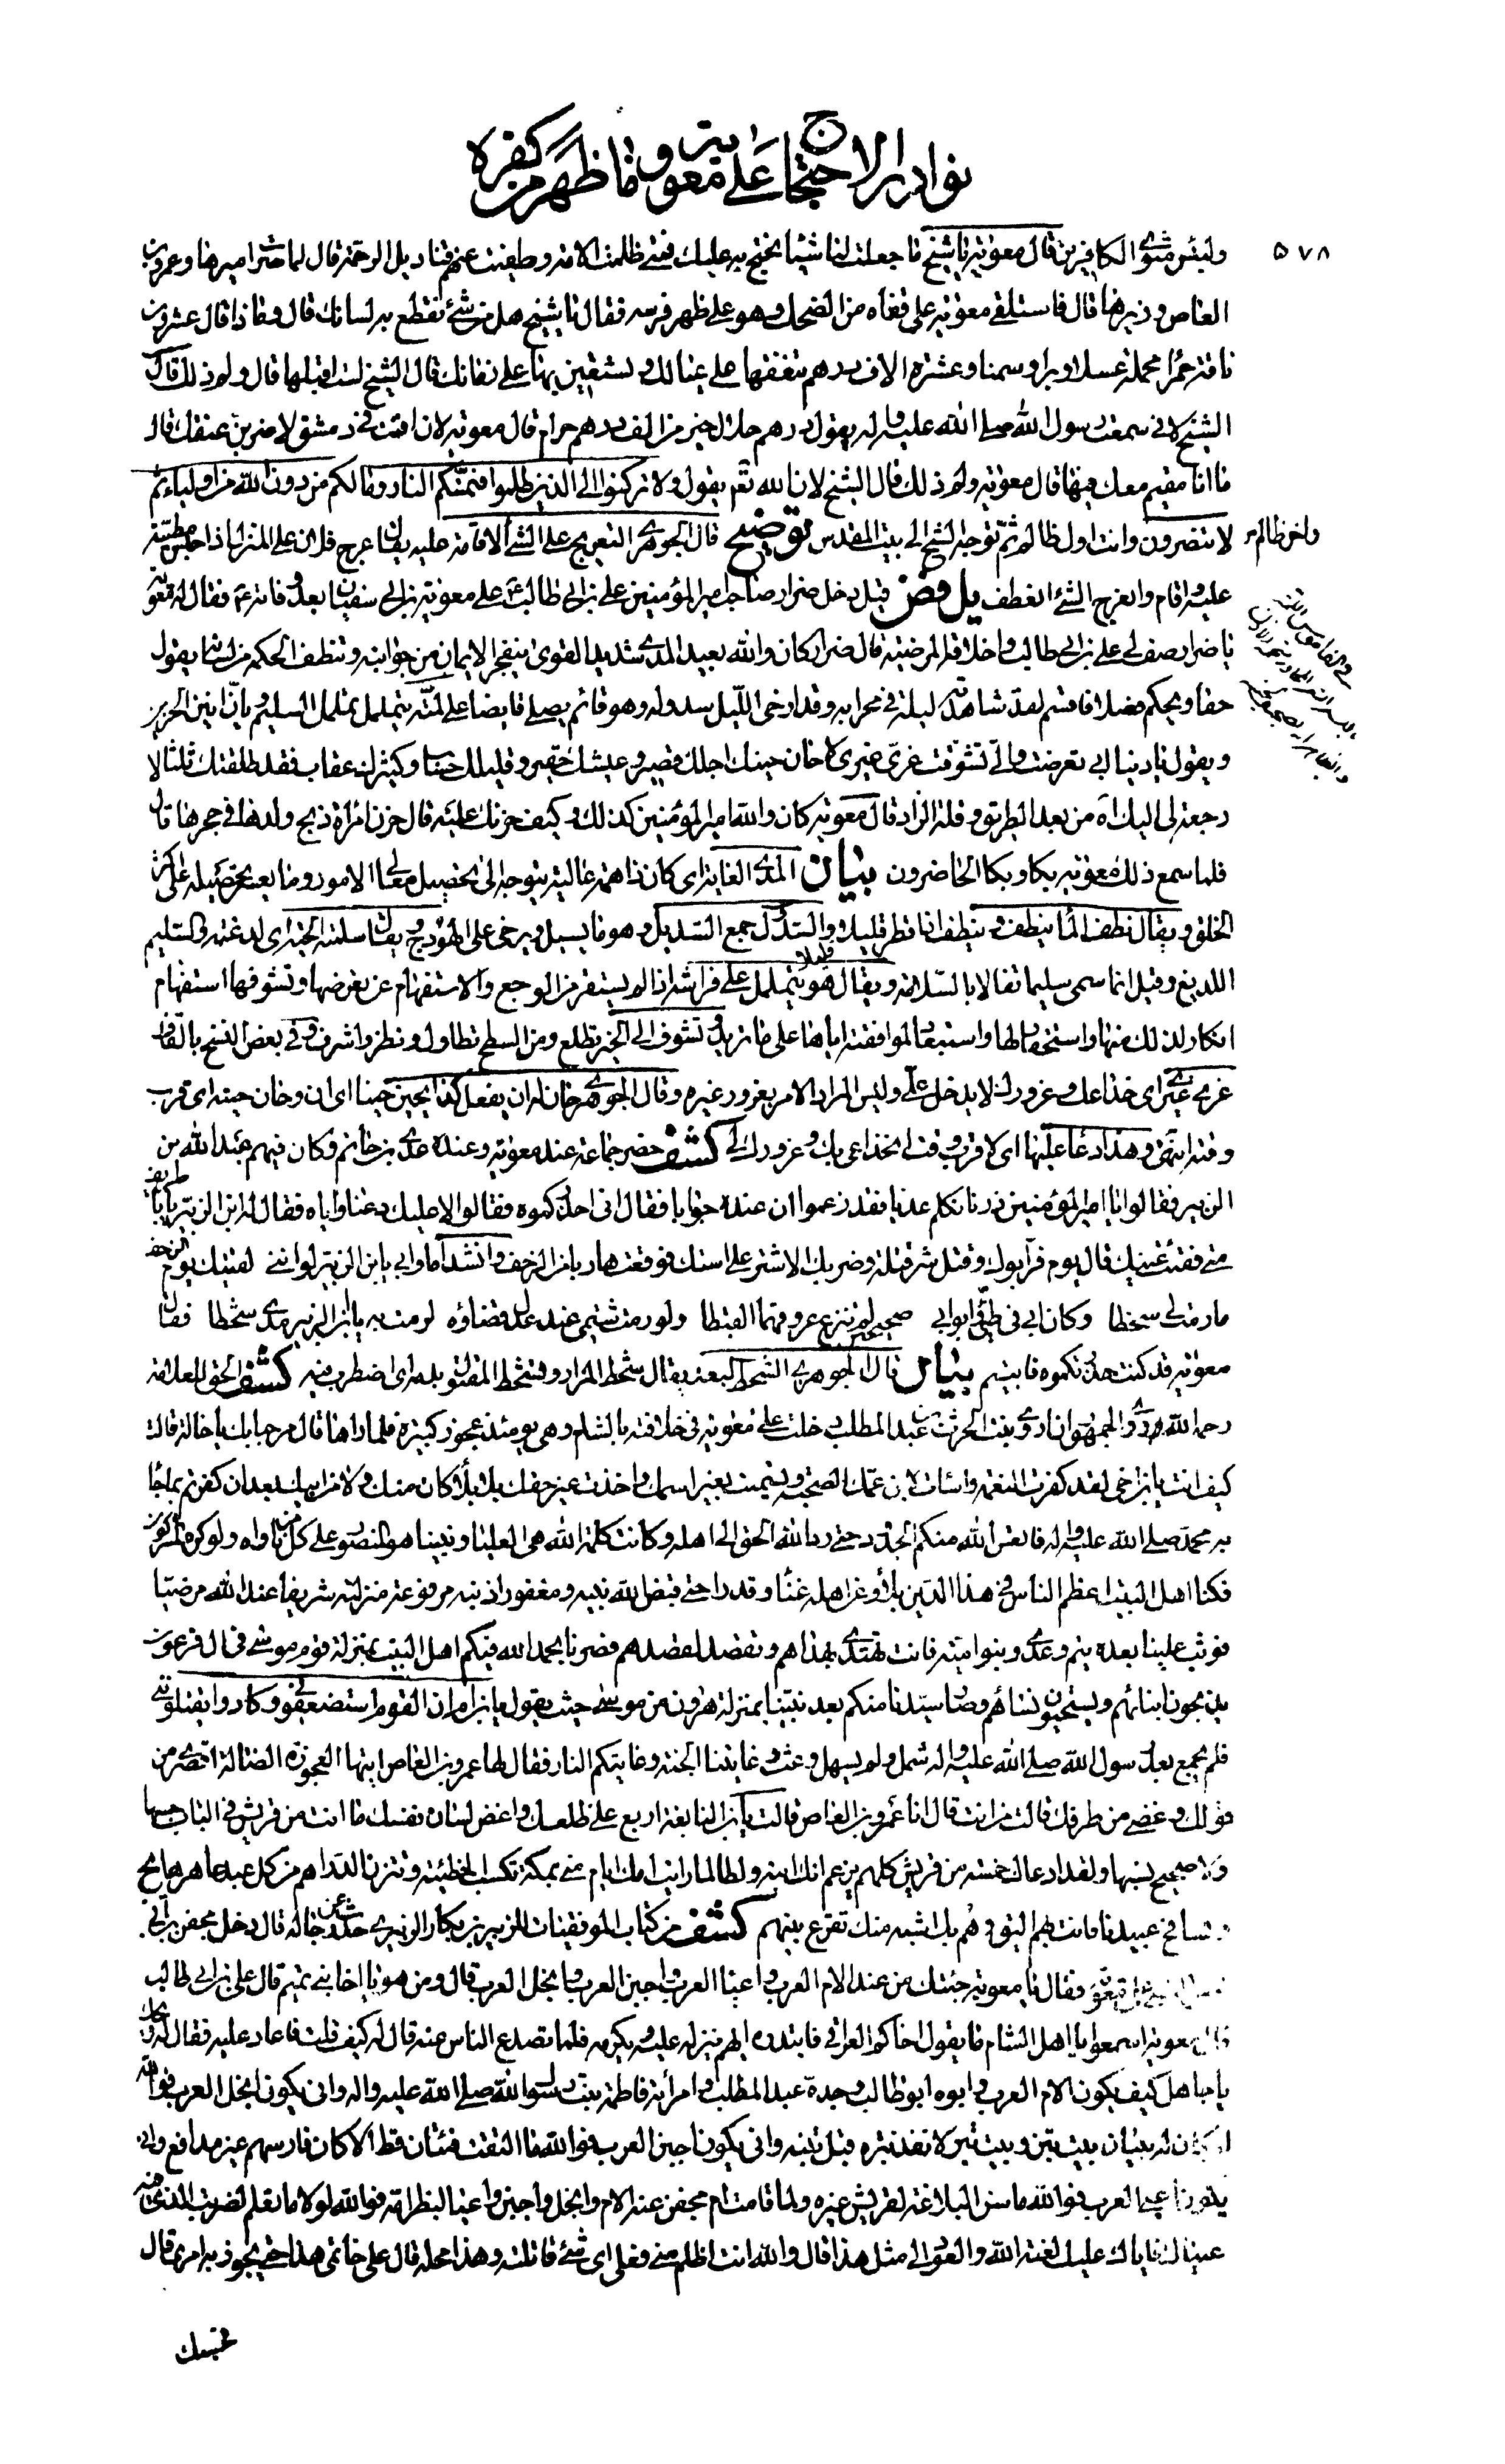 نوادر الاحتجاج على معوية و ما ظهر من كفره
۵۷۸
ولبئس مثوى الكافرين قال معوية يا شيخ ما جعلت لنا شيئا نحتج به عليك فمتى ظلمت الامة وطعنت عنهم قناديل الرحمة قال لما صرت اميرها وعمرو بن
العاص وزيرها قال فاستلقى معوية على قفاه من الضحك وهو على ظهر فرسه فقال يا شيخ هل من شئ نقطع به لسانك قال وما ذا قال عشرون
ناقة حمراء محملة عسلا وبرا وسمنا وعشرة الاف درهم تنفقها على عيالك وتستعين بها على زمانك قال الشيخ لست اقبلها قال ولم ذلك قال
الشيخ لاني سمعت رسول الله صلى الله عليه واله يقول درهم حلال خير من الف درهم حرام قال معوية لان اقمت في دمشق لاضربن عنقك قال
ما انا مقيم معك فيها قال معوية ولم ذلك قال الشيخ لان الله تعم يقول ولا تركنوا الى الذين ظلموا فتمسكم النار وما لكم من دون الله من اولياء ثم
لا تنصرون وانت اول ظالم ثم توجه الشيخ الى بيت المقدس توضيح قال الجوهري التعريج على الشئ الاقامة عليه يقال عرج فلان على المنزل اذا حبس مطيته
واخر ظالم
عليه واقام وانعرج الشئ انعطف يل فض قيل دخل ضرار صاحب امير المؤمنين علي بن ابي طالب ع على معوية بن ابي سفيان بعد وفاته ع فقال له معوية
يا ضرار صف لي علي بن ابي طالب واخلاقه المرضية قال ضرار كان والله بعيد المدى شديد القوى ينفجر الايمان من جوانبه وتنطف الحكمة من لسانه يقول
حقا ويحكم فصلا فاقسم لقد شاهدته ليلة في محرابه وقد ارخى الليل سدوله وهو قائم يصلي قابضا على لمته يتململ تململ السليم ويان انين الحزين
ويقول يا دنيا ابي تعرضت والي تشوقت غري غيري لا حان حينك اجلك قصير وعيشك حقير وقليلك حساب وكثيرك عقاب فقد طلقتك ثلثا لا
رجعة لي اليك اه من بعد الطريق وقلة الزاد قال معوية كان والله امير المؤمنين كذلك وكيف حزنك عليه قال حزن امراة ذبح ولدها في حجرها قال
فلما سمع ذلك معوية بكا وبكا الحاضرون بيان المدى الغاية اي كان ذا همة عالية يتوجه الى تحصيل معالي الامور وما يعسر تحصيله على اكثر
الخلق ويقال نطف الماء ينطف وينطف اذا قطر قليلا قليلا والسدل جمع السديل وهو ما يسبل ويرخى على الهودج ويقال سلمته الحية اي لدغته والسليم
اللديغ وقيل انما سمى سليما تفالا بالسلامة ويقال هو يتململ على فراشه اذا لم يستقر من الوجع والاستفهام عن تعرضها وتشوفها استفهام
انكار لذلك منها واستحقار لها واستبعاد لموافقته اياها على ما تريد وتشوف الى الخير تطلع ومن السطح تطاول ونظر واشرف وفي بعض النسخ بالقاف
غري غيري اي خداعك وغرورك لا يدخل علي وليس المراد الامر بغرور غيره وقال الجوهري حان له ان يفعل كذا يحين حينا اي ان وحان حينه اي قرب
وقته انتهى وهذا دعاء عليها اي لا قرب وقت انخداعي بك وغرورك لي كشف حضر جماعة عند معوية وعنده عدي بن حاتم وكان فيهم عبد الله بن
الزبير فقالوا يا امير المؤمنين ذرنا نكلم عديا فقد زعموا ان عنده جوابا فقال اني احذركموه فقالوا لا عليك دعنا واياه فقال له ابن الزبير يا با طريف
متى فقئت عينك قال يوم فر ابوك وقتل شر قتلة وضربك الاشتر على استك فوقعت هاربا من الزحف وانشد اما وابي يا بن الزبير لو انني لقيتك يوم الزحف
ما رمت لي سخطا وكان ابي في طيئ وابو ابي صحيحين لم تنزع عروقهما القبطا ولو رمت شتمي عند عدل قضاؤه لرمت به يا بن الزبير مدى شحطا فقال
معوية قد كنت حذرتكموه فابيتم بيان قال الجوهري الشحط البعد يقال شحط المزار وتشحط المقتول بدمه اي اضطرب فيه كشف الحق للعلامة
رحمه الله روى الجمهور ان اروى بنت الحرث بن عبد المطلب دخلت على معوية في خلافته بالشام وهي يومئذ عجوز كبيرة فلما راها قال مرحبا بك يا خالة قالت
كيف انت يا بن اخي لقد كفرت النعمة واسات لابن عمك الصحبة وتسميت بغير اسمك واخذت غير حقك بلا بلاء كان منك ولا من ابيك بعد ان كفرتم بما جاء
به محمد صلى الله عليه واله فاتعس الله منكم الجدود حتى رد الله الحق الى اهله وكانت كلمة الله هي العليا ونبينا هو المنصور على كل من ناواه ولو كره المشركون
فكنا اهل البيت اعظم الناس في هذا الدين بلاء وعن اهله غناء وقدرا حتى قبض الله نبيه مغفورا ذنبه مرفوعة منزلته شريفا عند الله مرضيا
فوثب علينا بعده تيم وعدي وبنو امية فانت تهتدي بهداهم وتقصد لقصدهم فصرنا بحمد الله فيكم اهل البيت بمنزلة قوم موسى في ال فرعون
يذبحون ابنائهم ويستحيون نسائهم وصار سيدنا منكم بعد نبينا بمنزلة هرون من موسى حيث يقول يا بن ام ان القوم استضعفوني وكادوا يقتلونني
فلم يجمع بعد رسول الله صلى الله عليه واله شمل ولم يسهل وعث وغايتنا الجنة وغايتكم النار فقال لها عمرو بن العاص ايتها العجوزة الضالة اقصري من
قولك وغضي من طرفك قالت من انت قال انا عمرو بن العاص قالت يا بن النابغة اربع على ظلعك واعض لسان نفسك ما انت من قريش في لباب حسبها
ولا صحيح نسبها ولقد ادعاك خمسة من قريش كلهم يزعم انك ابنه ولطالما رايت امك ايام منى بمكة تكسب الخطيئة وتتزن الدراهم من كل عبد عاهر هايج
وتسافح عبيدنا فانت بهم اليق وهم بك اشبه منك تقرع بينهم كشف من كتاب الموفقيات للزبير بن بكار الزبيري حدث عن رجاله قال دخل محفن بن ابي
فقال يا معوية جئتك من عند الام العرب واعيا العرب واجبن العرب وابخل العرب قال ومن هو يا اخا بني تميم قال علي بن ابي طالب
قال معوية اسمعوا يا اهل الشام ما يقول اخاكم العراقي فابتدروه ايهم ينزله عليه ويكرمه فلما تصدع الناس عنه قال له كيف قلت فاعاد عليه فقال له ويحك
يا جاهل كيف يكون الام العرب وابوه ابو طالب وجده عبد المطلب وامراته فاطمة بنت رسول الله صلى الله عليه واله واني يكون ابخل العرب فو الله
لو كان له بيتان بيت تبن وبيت تبر لانفد تبره قبل تبنه واني يكون اجبن العرب فو الله ما التقت فئتان قط الا كان فارسهم غير مدافع واني
يكون اعيى العرب فو الله ما سن البلاغة لقريش غيره ولما قامت ام محفن عنه الام وابخل واجبن واعيا لبظر امه فو الله لولا ما تعلم لضربت الذي فيه
عيناك فاياك عليك لعنة الله والعود الى مثل هذا قال والله انت اظلم مني فعلى اي شئ قاتلته وهذا محله قال على خاتمي هذا حتى يجوز به امري قال
فحسبك